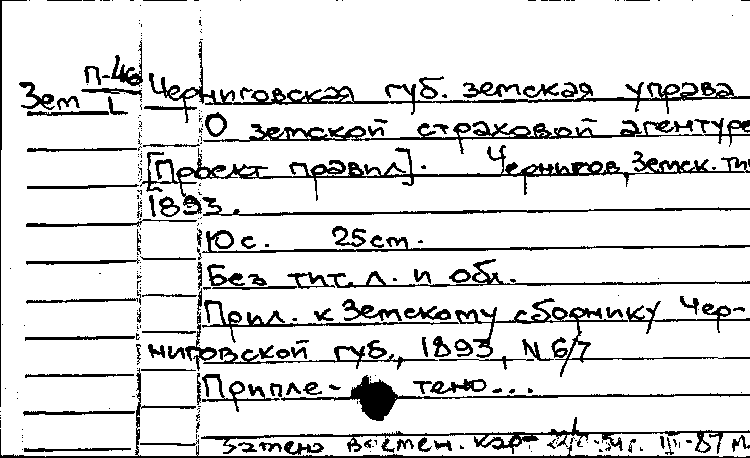 Зем П-46/1 Черниговская губ. земская управа
О земской страховой агентуре
[Проект правил]. Чернигов, Земск. тип
1893.
10 с. 25 cm.
Без тит. л. и обл.
Прил. к Земскому сборнику Чер-
ниговской губ., 1893, N 6/7
Припле- тено...